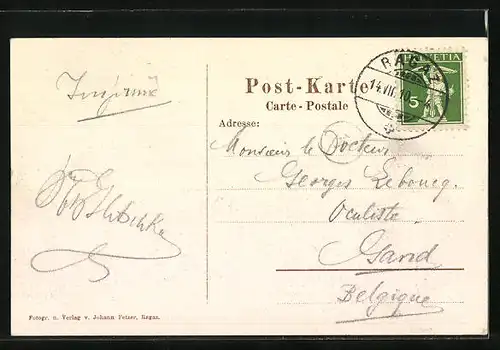 Imprimé
Post-Karte
Carte-Postale
Adresse:
HELVETIA
5
RAGAZ
14.VII.10
Monsieur le Docteur
Georges Leboucq.
Oculiste
Gand
Belgique
Fotogr. u. Verlag v. Johann Fetzer, Ragaz.